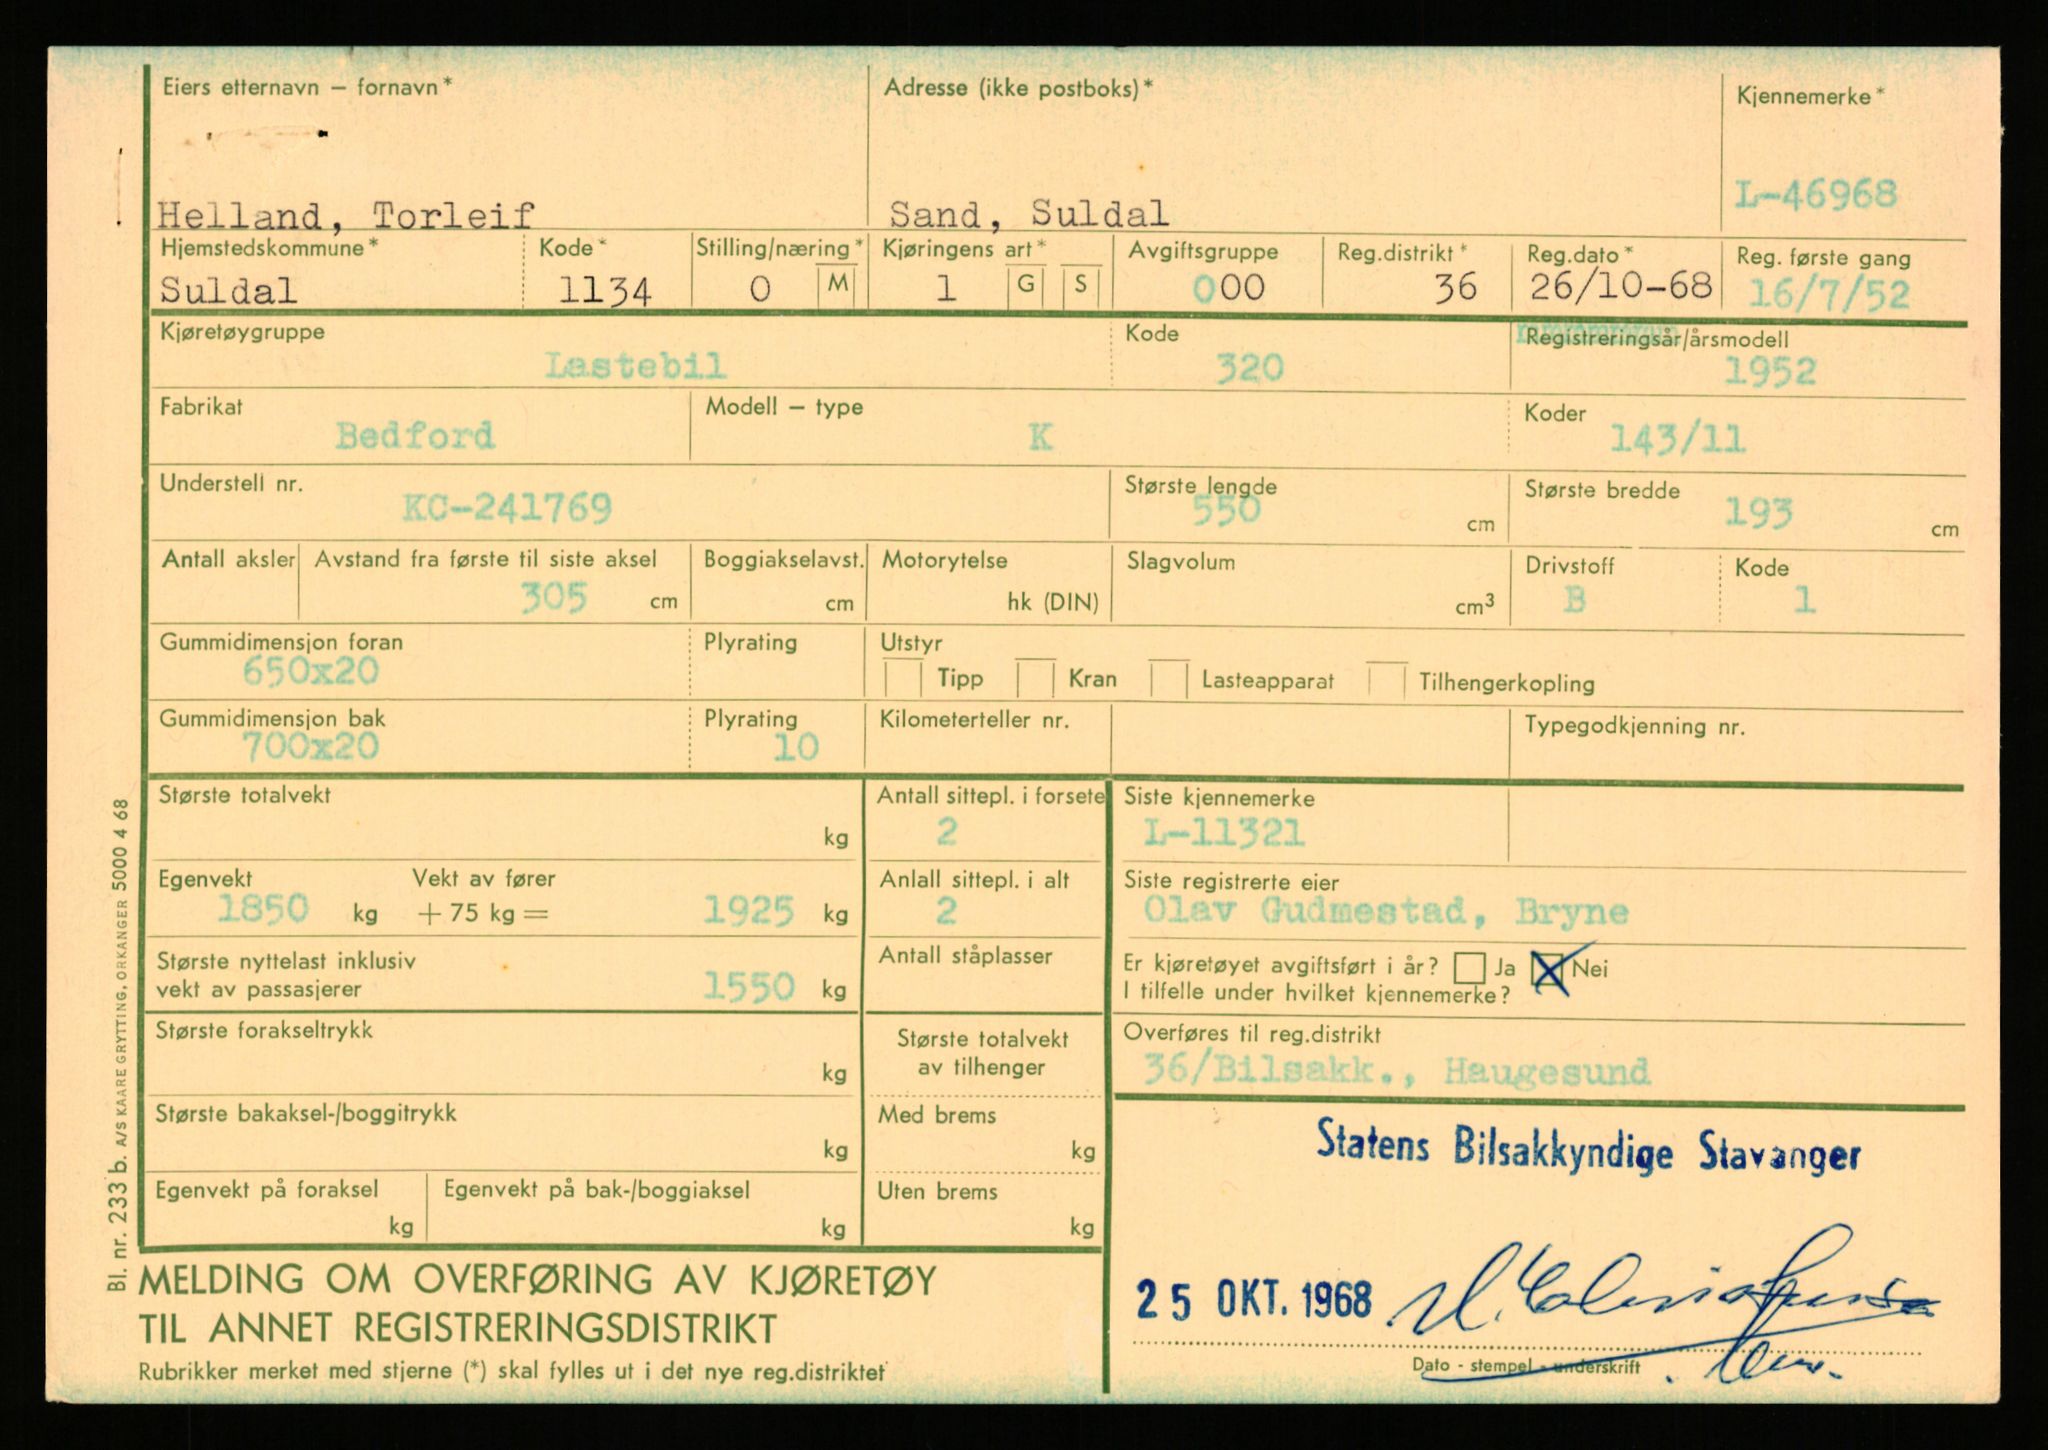 Eiers etternavn – fornavn* Adresse (ikke postboks)* Kjennemerke*
Helland, Torleif Sand, Suldal L-46968
Hjemstedskommune* Kode* Stilling/næring* Kjøringens art* Avgiftsgruppe Reg.distrikt* Reg.dato* Reg. første gang
Suldal 1134 0 M 1 G S 000 36 26/10-68 16/7/52
Kjøretøygruppe Kode Registreringsår/årsmodell
Lastebil 320 1952
Fabrikat Modell – type Koder
Bedford K 143/11
Understell nr. Største lengde Største bredde
KC-241769 550 cm 193 cm
Antall aksler Avstand fra første til siste aksel Boggiakselavst. Motorytelse Slagvolum Drivstoff Kode
305 cm cm hk (DIN) cm3 B 1
Gummidimensjon foran Plyrating Utstyr
650x20 Tipp Kran Lasteapparat Tilhengerkopling
Gummidimensjon bak Plyrating Kilometerteller nr. Typegodkjenning nr.
700x20 10
Største totalvekt Antall sittepl. i forsete Siste kjennemerke
kg 2 L-11321
Egenvekt Vekt av fører Anlall sittepl. i alt Siste registrerte eier
1850 kg + 75 kg = 1925 kg 2 Olav Gudmestad, Bryne
Største nyttelast inklusiv Antall ståplasser Er kjøretøyet avgiftsført i år? Ja Nei
vekt av passasjerer 1550 kg I tilfelle under hvilket kjennemerke?
Største forakseltrykk Største totalvekt Overføres til reg.distrikt
kg av tilhenger 36/Bilsakk., Haugesund
Største bakaksel-/boggitrykk Med brems
kg kg
Statens Bilsakkyndige Stavanger
Egenvekt på foraksel Egenvekt på bak-/boggiaksel Uten brems
kg kg kg
MELDING OM OVERFØRING AV KJØRETØY
TIL ANNET REGISTRERINGSDISTRIKT
Rubrikker merket med stjerne (*) skal fylles ut i det nye reg.distriktet
25 OKT. 1968
Dato - stempel - underskrift
Bl. nr. 233 b. A/S KAARE GRYTTING, ORKANGER 5000 4 68